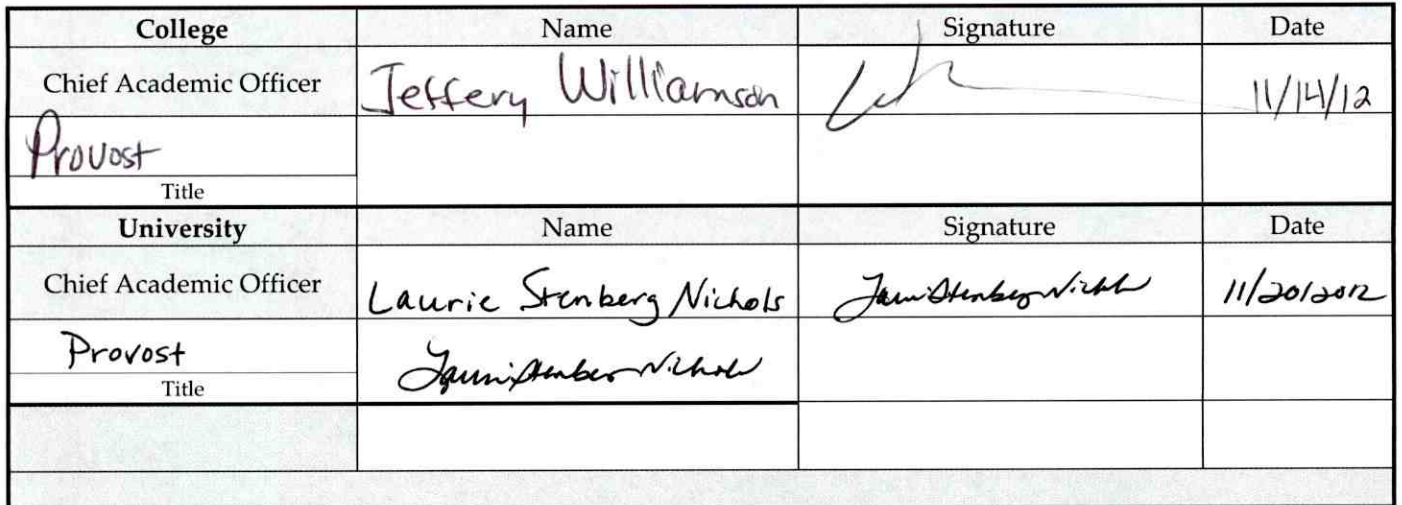 College Name Signature Date
Chief Academic Officer Jeffery Williamson 11/14/12
Provost
Title
University Name Signature Date
Chief Academic Officer Laurie Stenberg Nichols Laurie Stenberg Nichols 11/20/2012
Provost Laurie Stenberg Nichols
Title